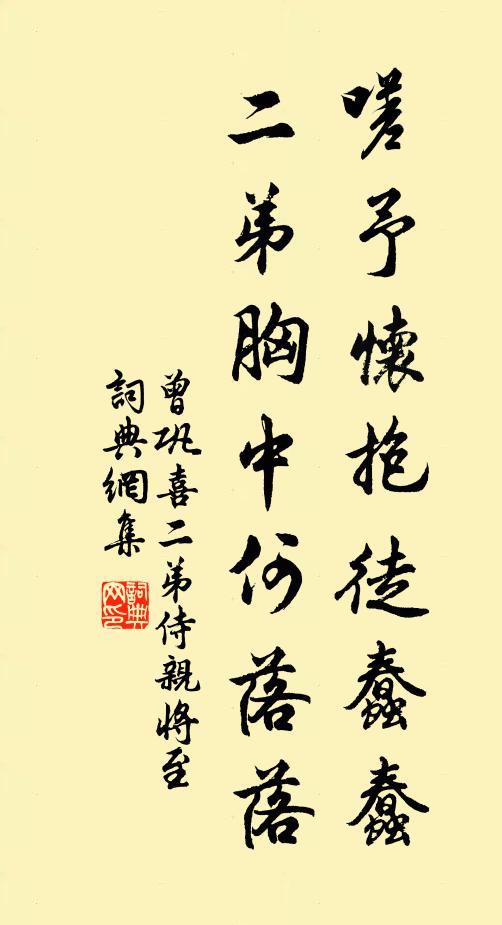 嗟予懷抱徒蠢蠢
二弟胸中何落落
曾巩喜二弟侍親將至
詞典網集
詞典网印